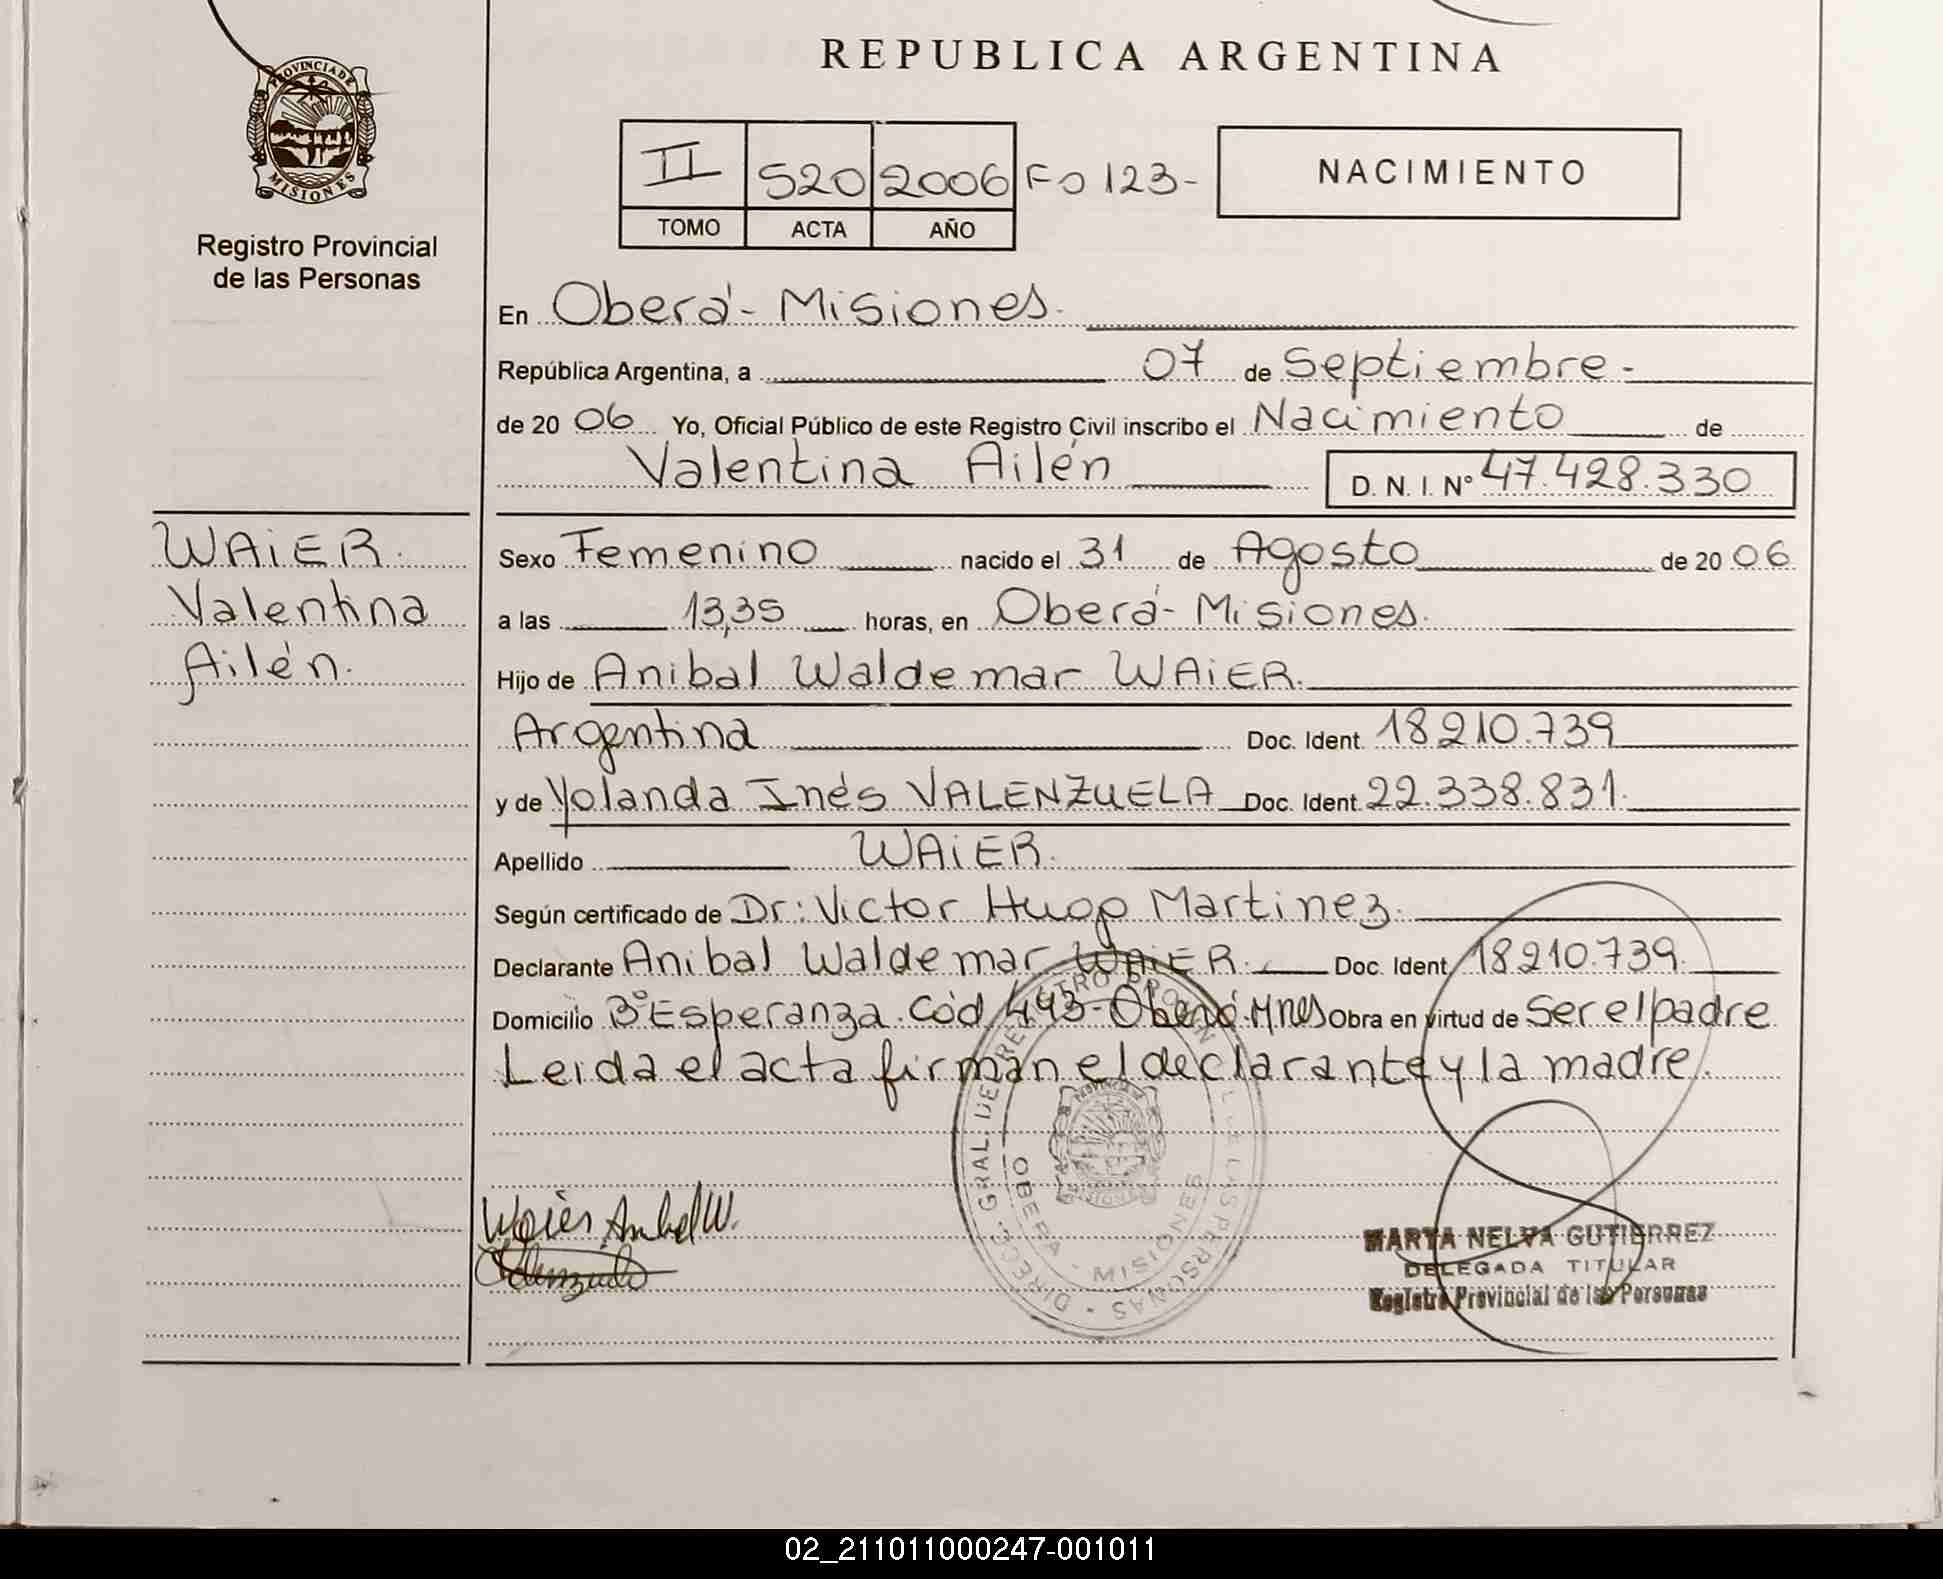 REPUBLICA ARGENTINA
PROVINCIA DE
MISIONES
Registro Provincial
de las Personas
II 520 2006 Fo 123-
TOMO ACTA AÑO
NACIMIENTO
En Oberá- Misiones.
República Argentina, a 07 de Septiembre-
de 20 06 Yo, Oficial Público de este Registro Civil inscribo el Nacimiento de
Valentina Ailén D. N. I. N° 47.428.330
WAiER.
Valentina
Ailén.
Sexo Femenino nacido el 31 de Agosto de 20 06
a las 13,35 horas, en Oberá- Misiones.
Hijo de Anibal Waldemar WAiER.
Argentina Doc. Ident. 18210.739
y de Yolanda Inés VALENZUELA Doc. Ident. 22.338.831.
Apellido WAiER.
Según certificado de Dr: Victor Hugo Martinez.
Declarante Anibal Waldemar WAiER. Doc. Ident. 18210.739.
Domicilio B° Esperanza. Cód. 493- Oberá. Mnes Obra en virtud de Ser el padre
Leida el acta firman el declarante y la madre.
DIREC. GRAL. DE REGISTRO PROVINCIAL DE LAS PERSONAS
OBERA - MISIONES
Waier Anibal W.
Valenzuela
MARTA NELVA GUTIERREZ
DELEGADA TITULAR
Registro Provincial de las Personas
02_211011000247-001011